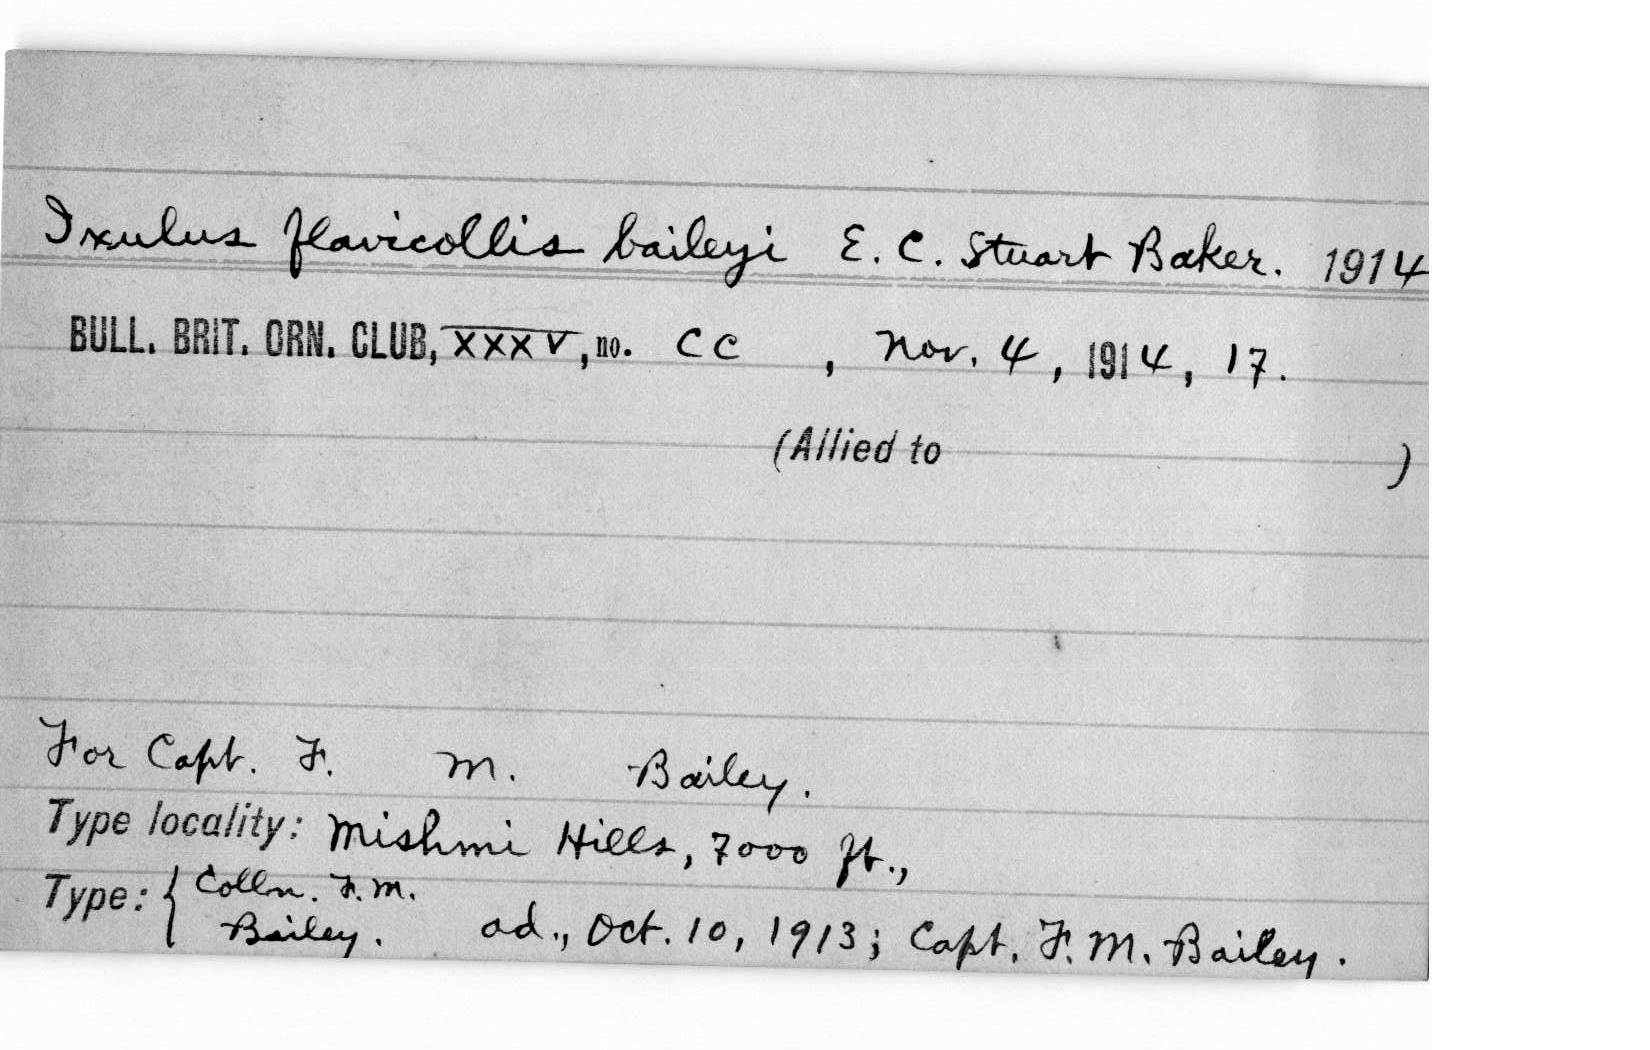 Ixulus flavicollis baileyi E. C. Stuart Baker. 1914
BULL. BRIT. ORN. CLUB, XXXV, no. CC , Nov. 4, 1914, 17.
(Allied to )
For Capt. F. M. Bailey.
Type locality: Mishmi Hills, 7000 ft.,
Type: { Colln. F. M.
Bailey. ad., Oct. 10, 1913; Capt. F. M. Bailey.